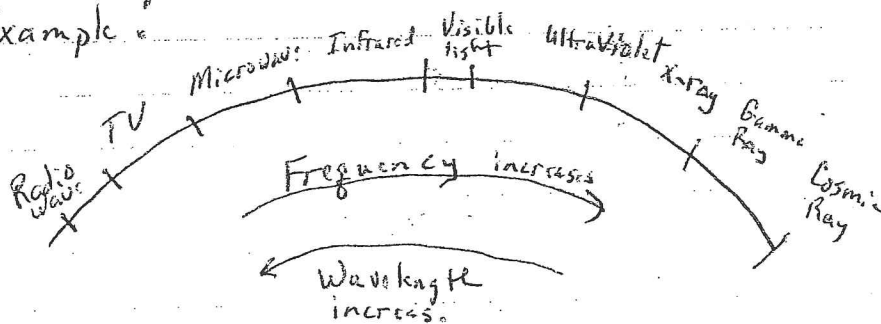 xample :
Radio
wave
TV
Microwave
Infrared
Visible
light
Ultraviolet
X-ray
Gamma
Ray
Cosmic
Ray
Frequency increases
Wavelength
increas.